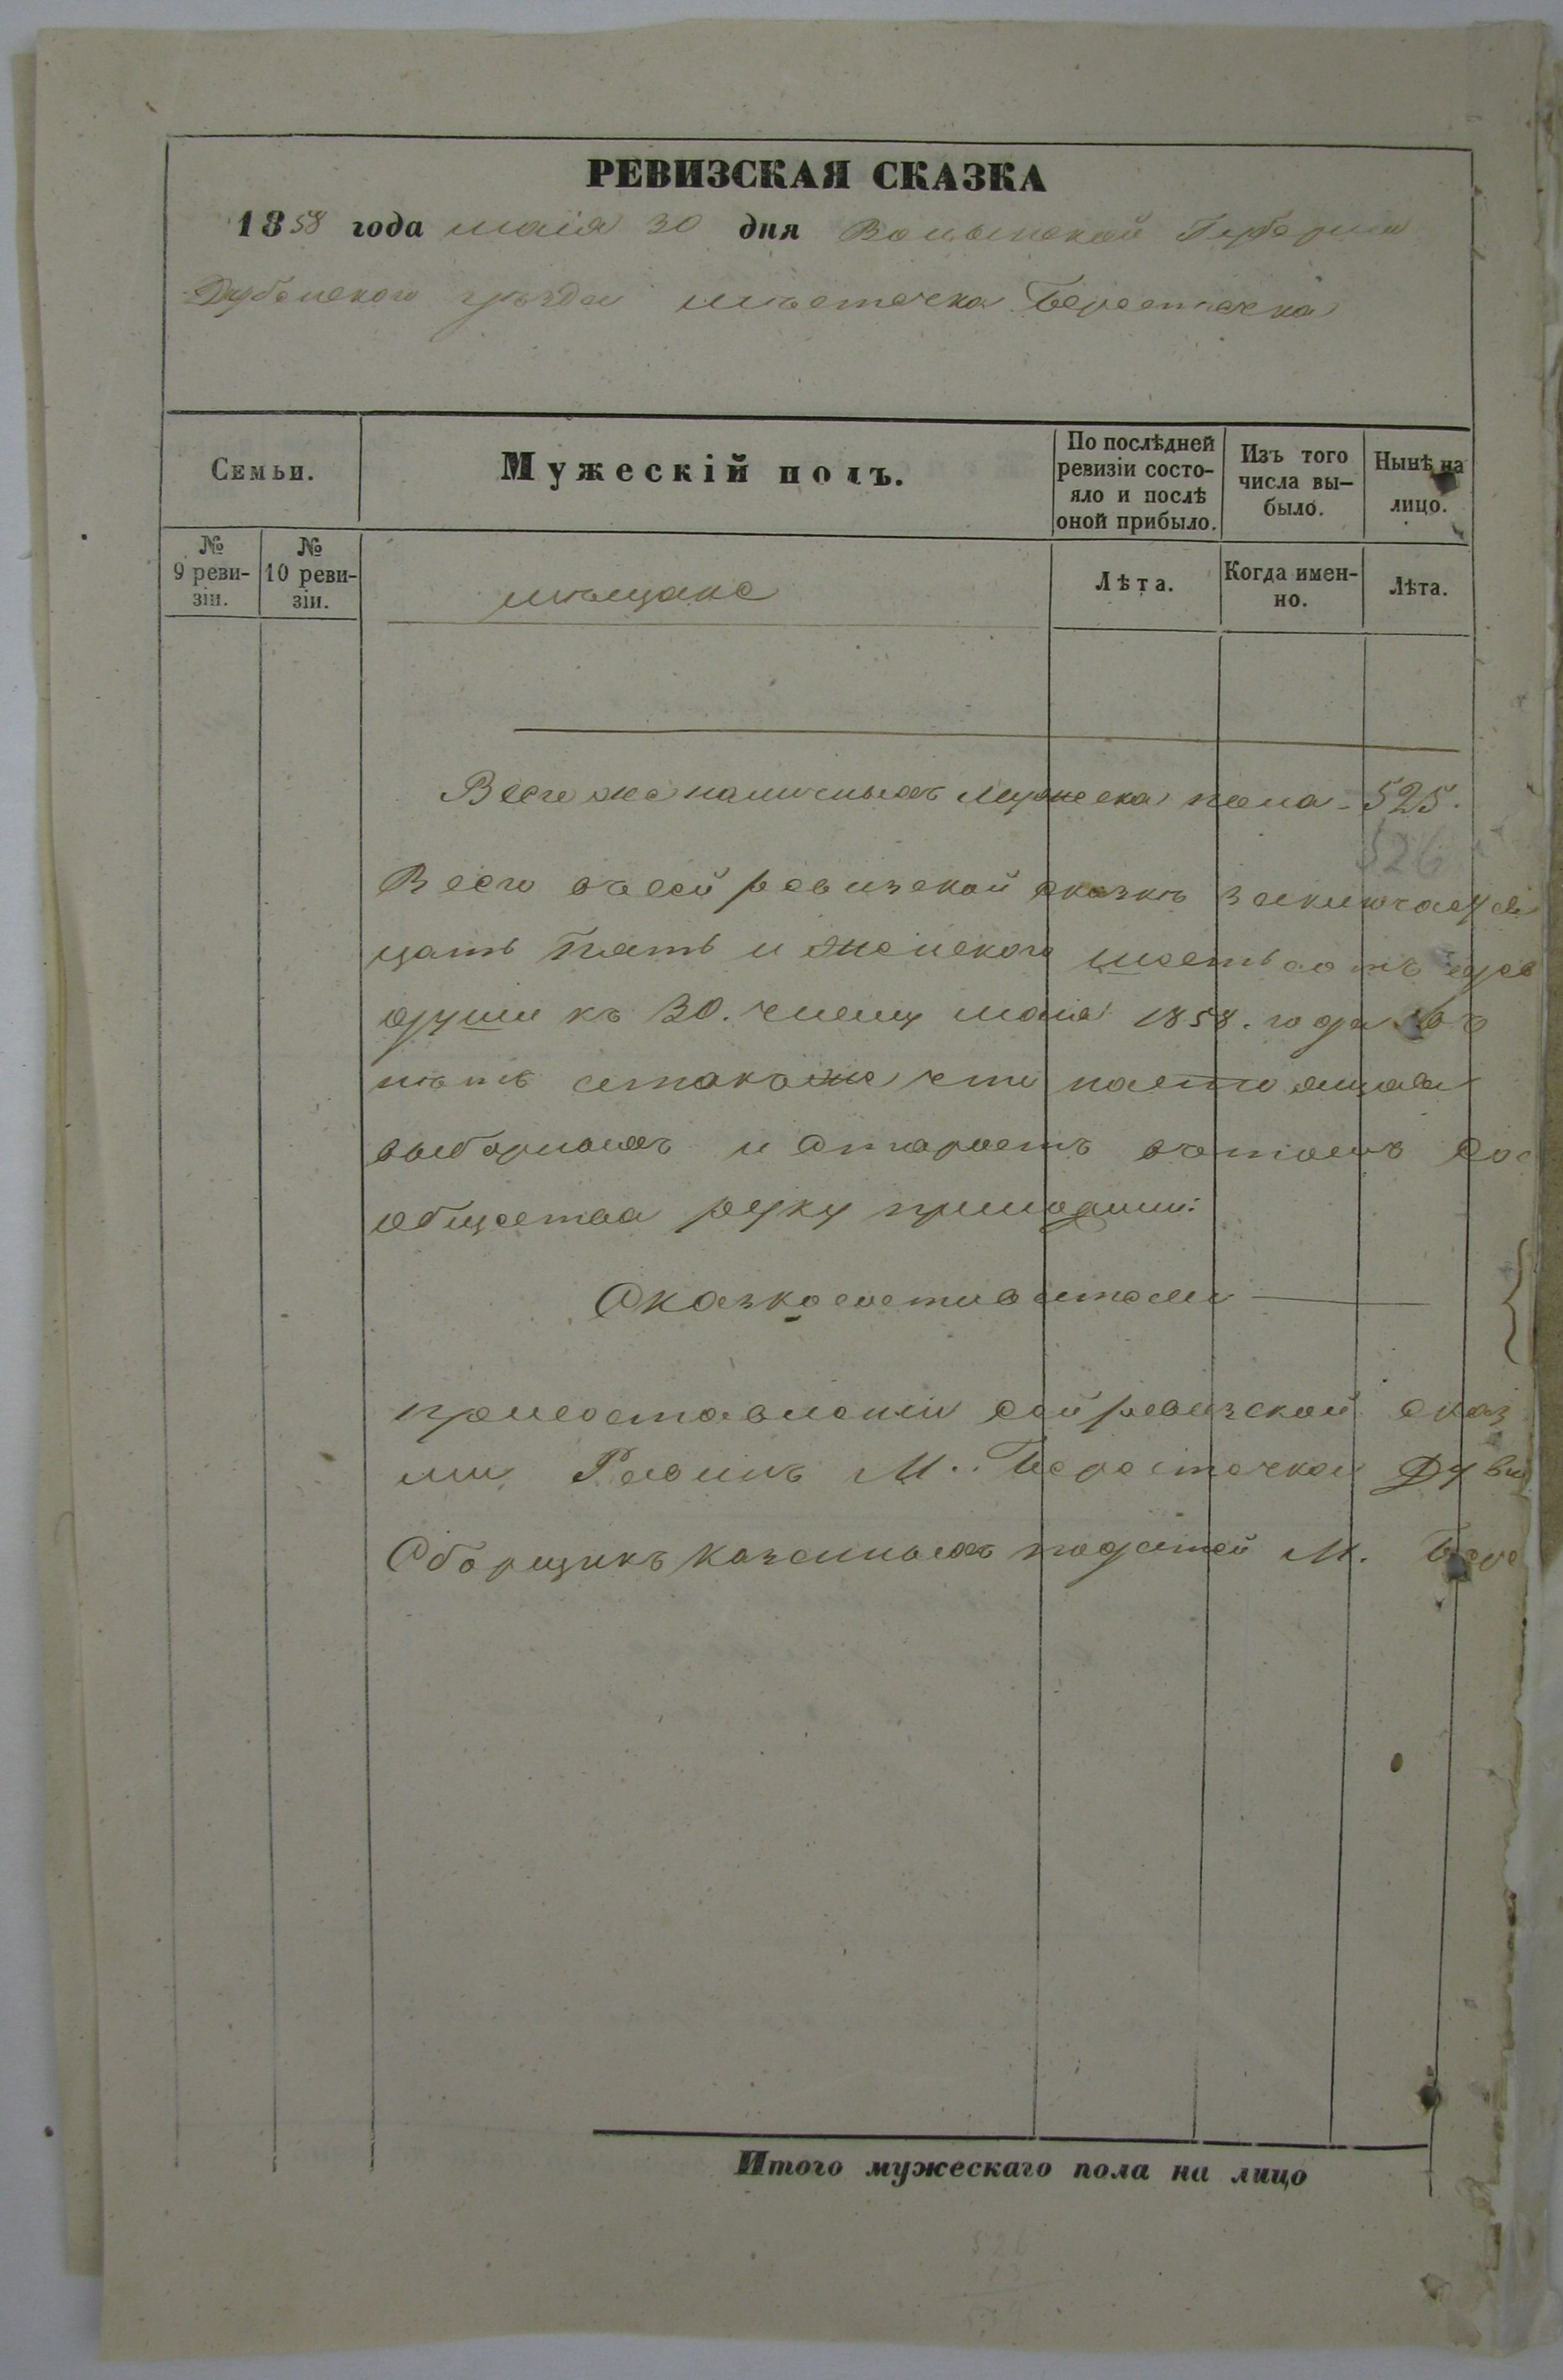 РЕВИЗСКАЯ СКАЗКА
1858 года маія 30 дня Волынской Губерніи
Дубенского уѣзда мѣстечка Берестечка
Семьи.
Мужескій полъ.
По послѣдней
ревизіи состо-
яло и послѣ
оной прибыло.
Изъ того
числа вы-
было.
Нынѣ на
лицо.
№
9 реви-
зіи.
№
10 реви-
зіи.
мѣщане
Лѣта.
Когда имен-
но.
Лѣта.
Всего же наличныхъ мужеска пола - 525.
526
Всего въ сей ревизской сказкѣ заключается
цать пять и женского шестьсотъ
души къ 30. числу маія 1858. года
нѣтъ также что
выборныхъ и Старостъ
общества руку приложили:
Сказкосоставители
при составленіи сей ревизской сказ
Равинъ М. Берестечка
Сборщикъ казенныхъ податей М. Бере
Итого мужескаго пола на лицо